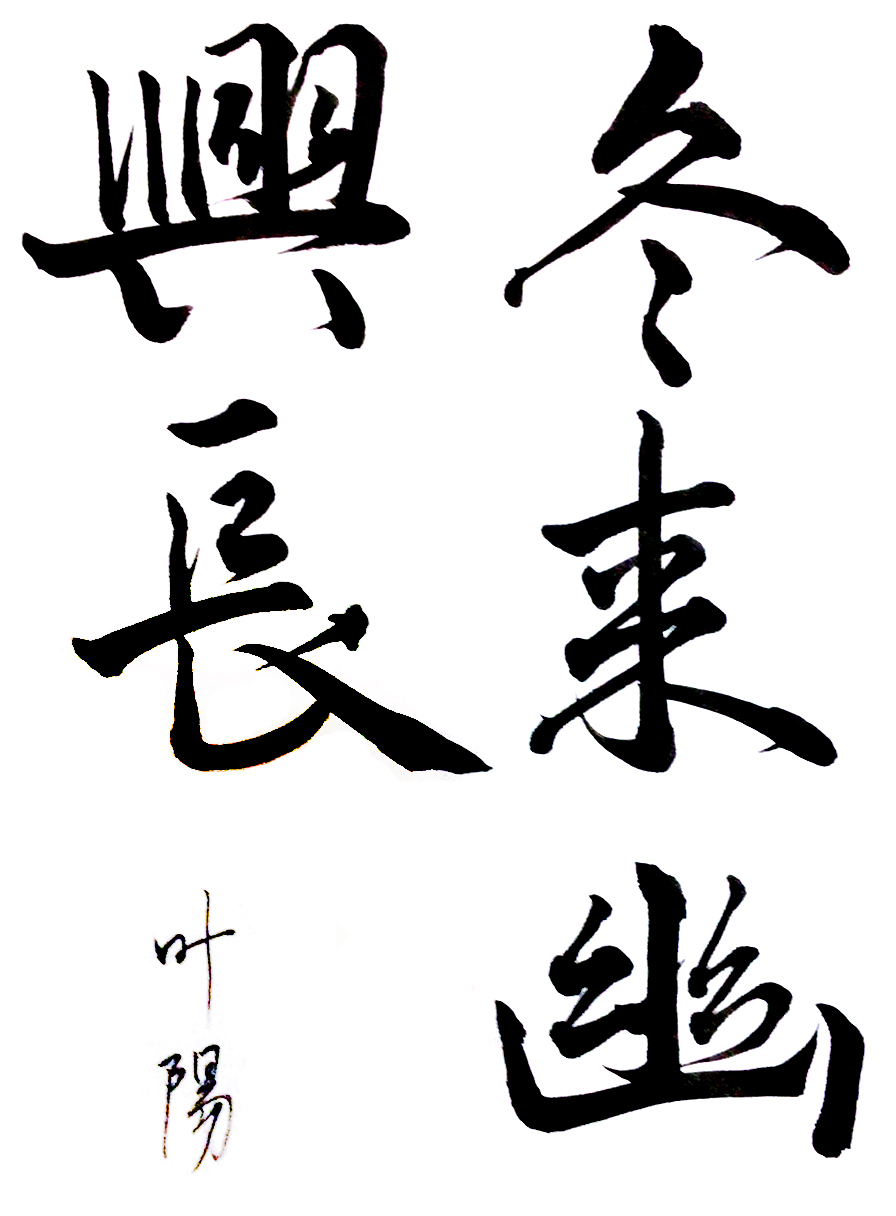 冬来幽
興長
叶陽